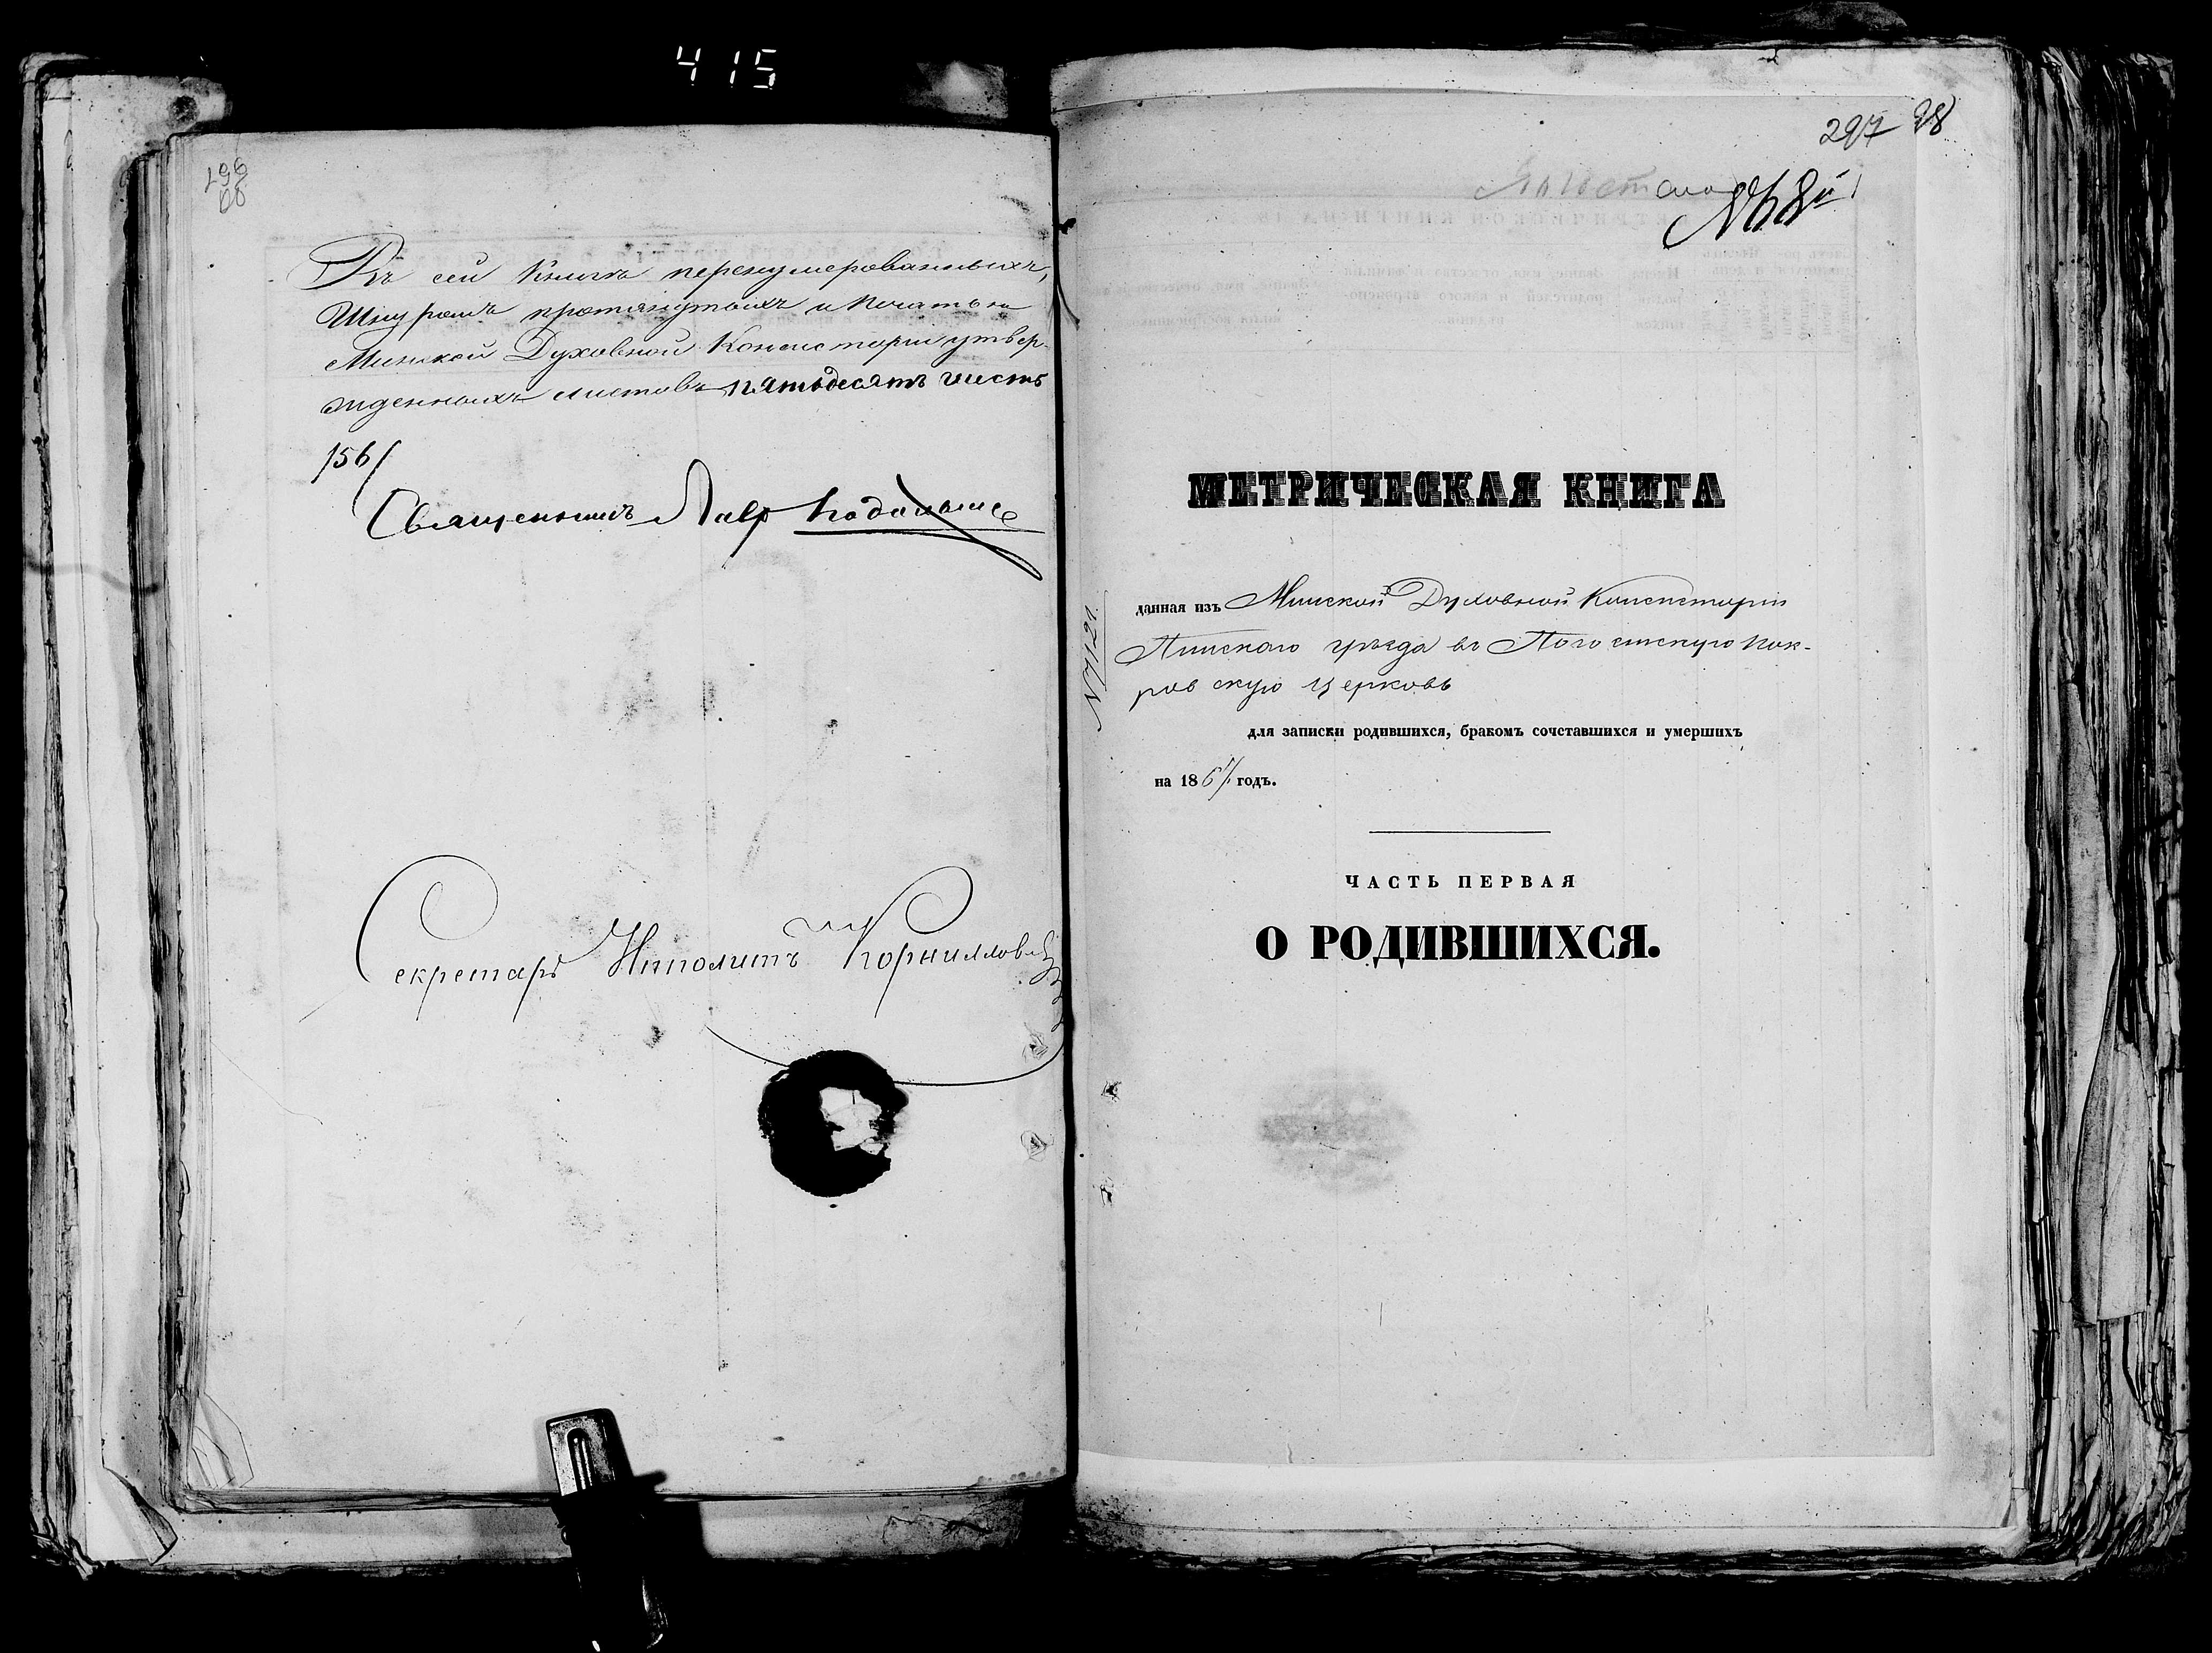 415
296
Въ сей Книгѣ перенумерованныхъ,
Шнуромъ протянутыхъ и печатью
Минской Духовной Консисторіи утвер-
жденныхъ листовъ пятьдесятъ шесть
/56/
Священникъ Лавр
Секретарь Ипполитъ Корниллов
297 98
Погост
№ 8й
МЕТРИЧЕСКАЯ КНИГА
данная изъ Минской Духовной Консисторіи
Пинскаго уѣзда въ Погостскую Пок-
ровскую Церковь
№ 7121.
для записки родившихся, бракомъ сочставшихся и умершихъ
на 186 годъ.
ЧАСТЬ ПЕРВАЯ
О РОДИВШИХСЯ.